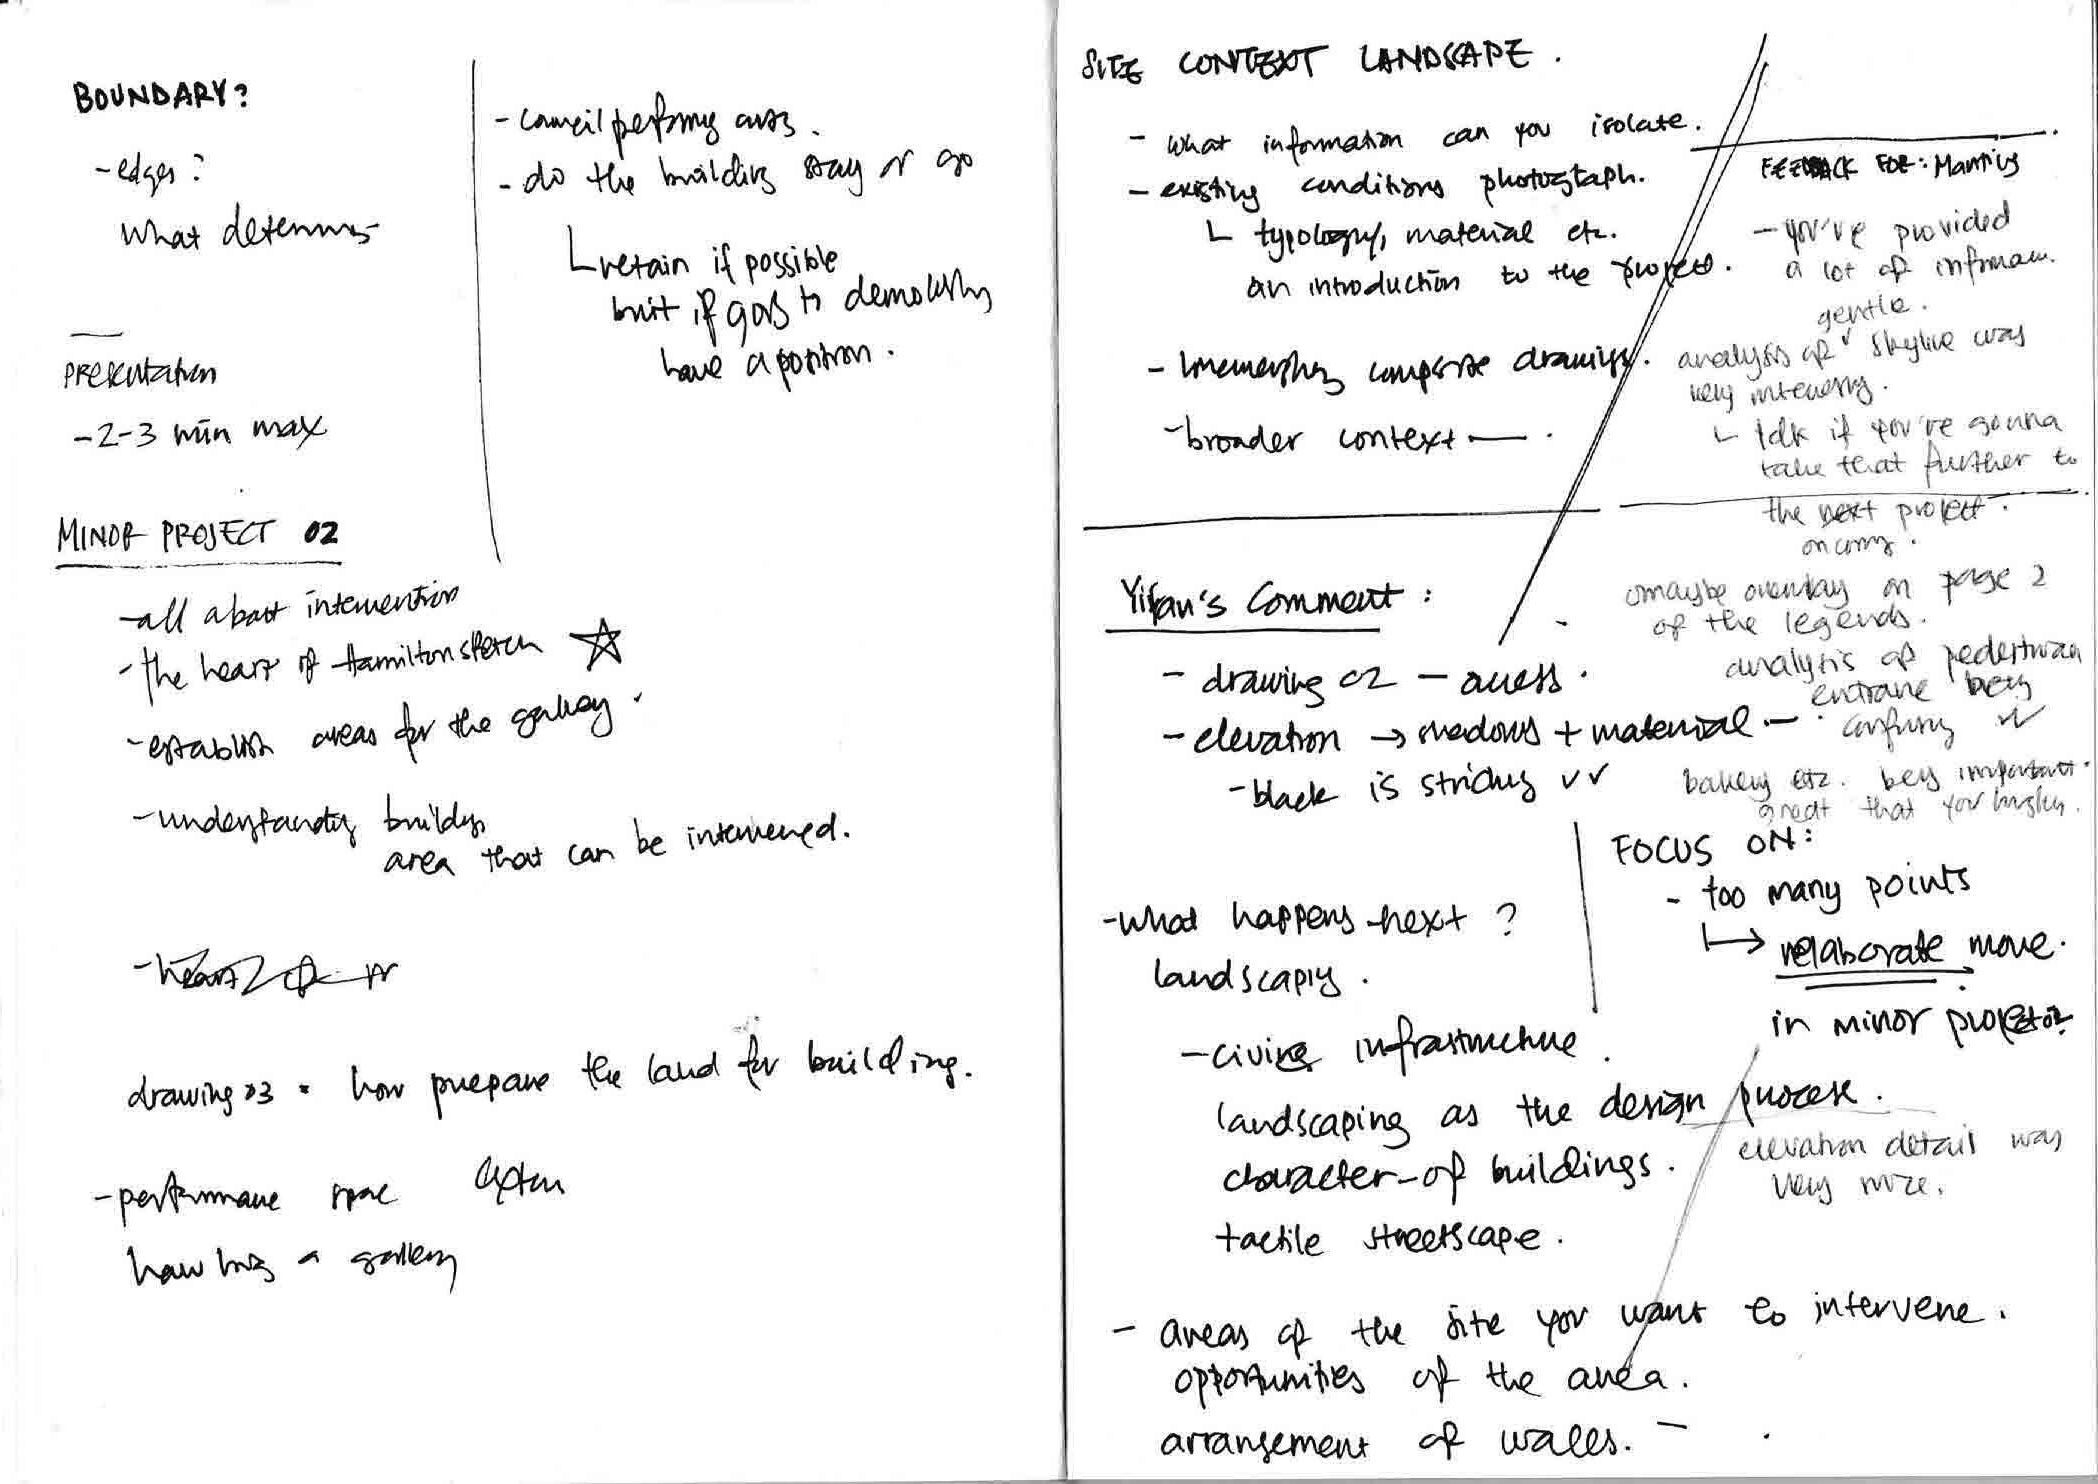 BOUNDARY?
- edges?
What determines
presentation
- 2-3 min max
- council performing arts.
- do the building stay or go
retain if possible
but if goes to demolish
have a position.
MINOR PROJECT 02
- all about intervention
- the heart of Hamilton sketch
- establish areas for the gallery.
- understanding buildings
area that can be intervened.
drawing 03 • how prepare the land for building.
- performance space
how big a gallery
SITE CONTEXT LANDSCAPE.
- what information can you isolate.
- existing conditions photograph.
typology, material etc.
an introduction to the project.
- composite drawings.
- broader context — .
FEEDBACK FOR:
- you've provided
a lot of informan.
gentle.
analysis of skyline was
very interesting.
talk if you're gonna
take that further to
the next project.
maybe overlay on page 2
of the legends.
analysis of pedestrian
entrance
confusing
bakery etc. important.
great that you
Yifan's Comment:
- drawing 02 — access.
- elevation → shadows + material — .
- black is striking ✓✓
FOCUS ON:
- too many points
→ relaborate move.
in minor project 02.
- what happens next ?
landscaping.
- civic infrastructure.
landscaping as the design process.
character of buildings.
tactile streetscape.
elevation detail was
very nice.
- areas of the site you want to intervene.
opportunities of the area.
arrangement of walls. —